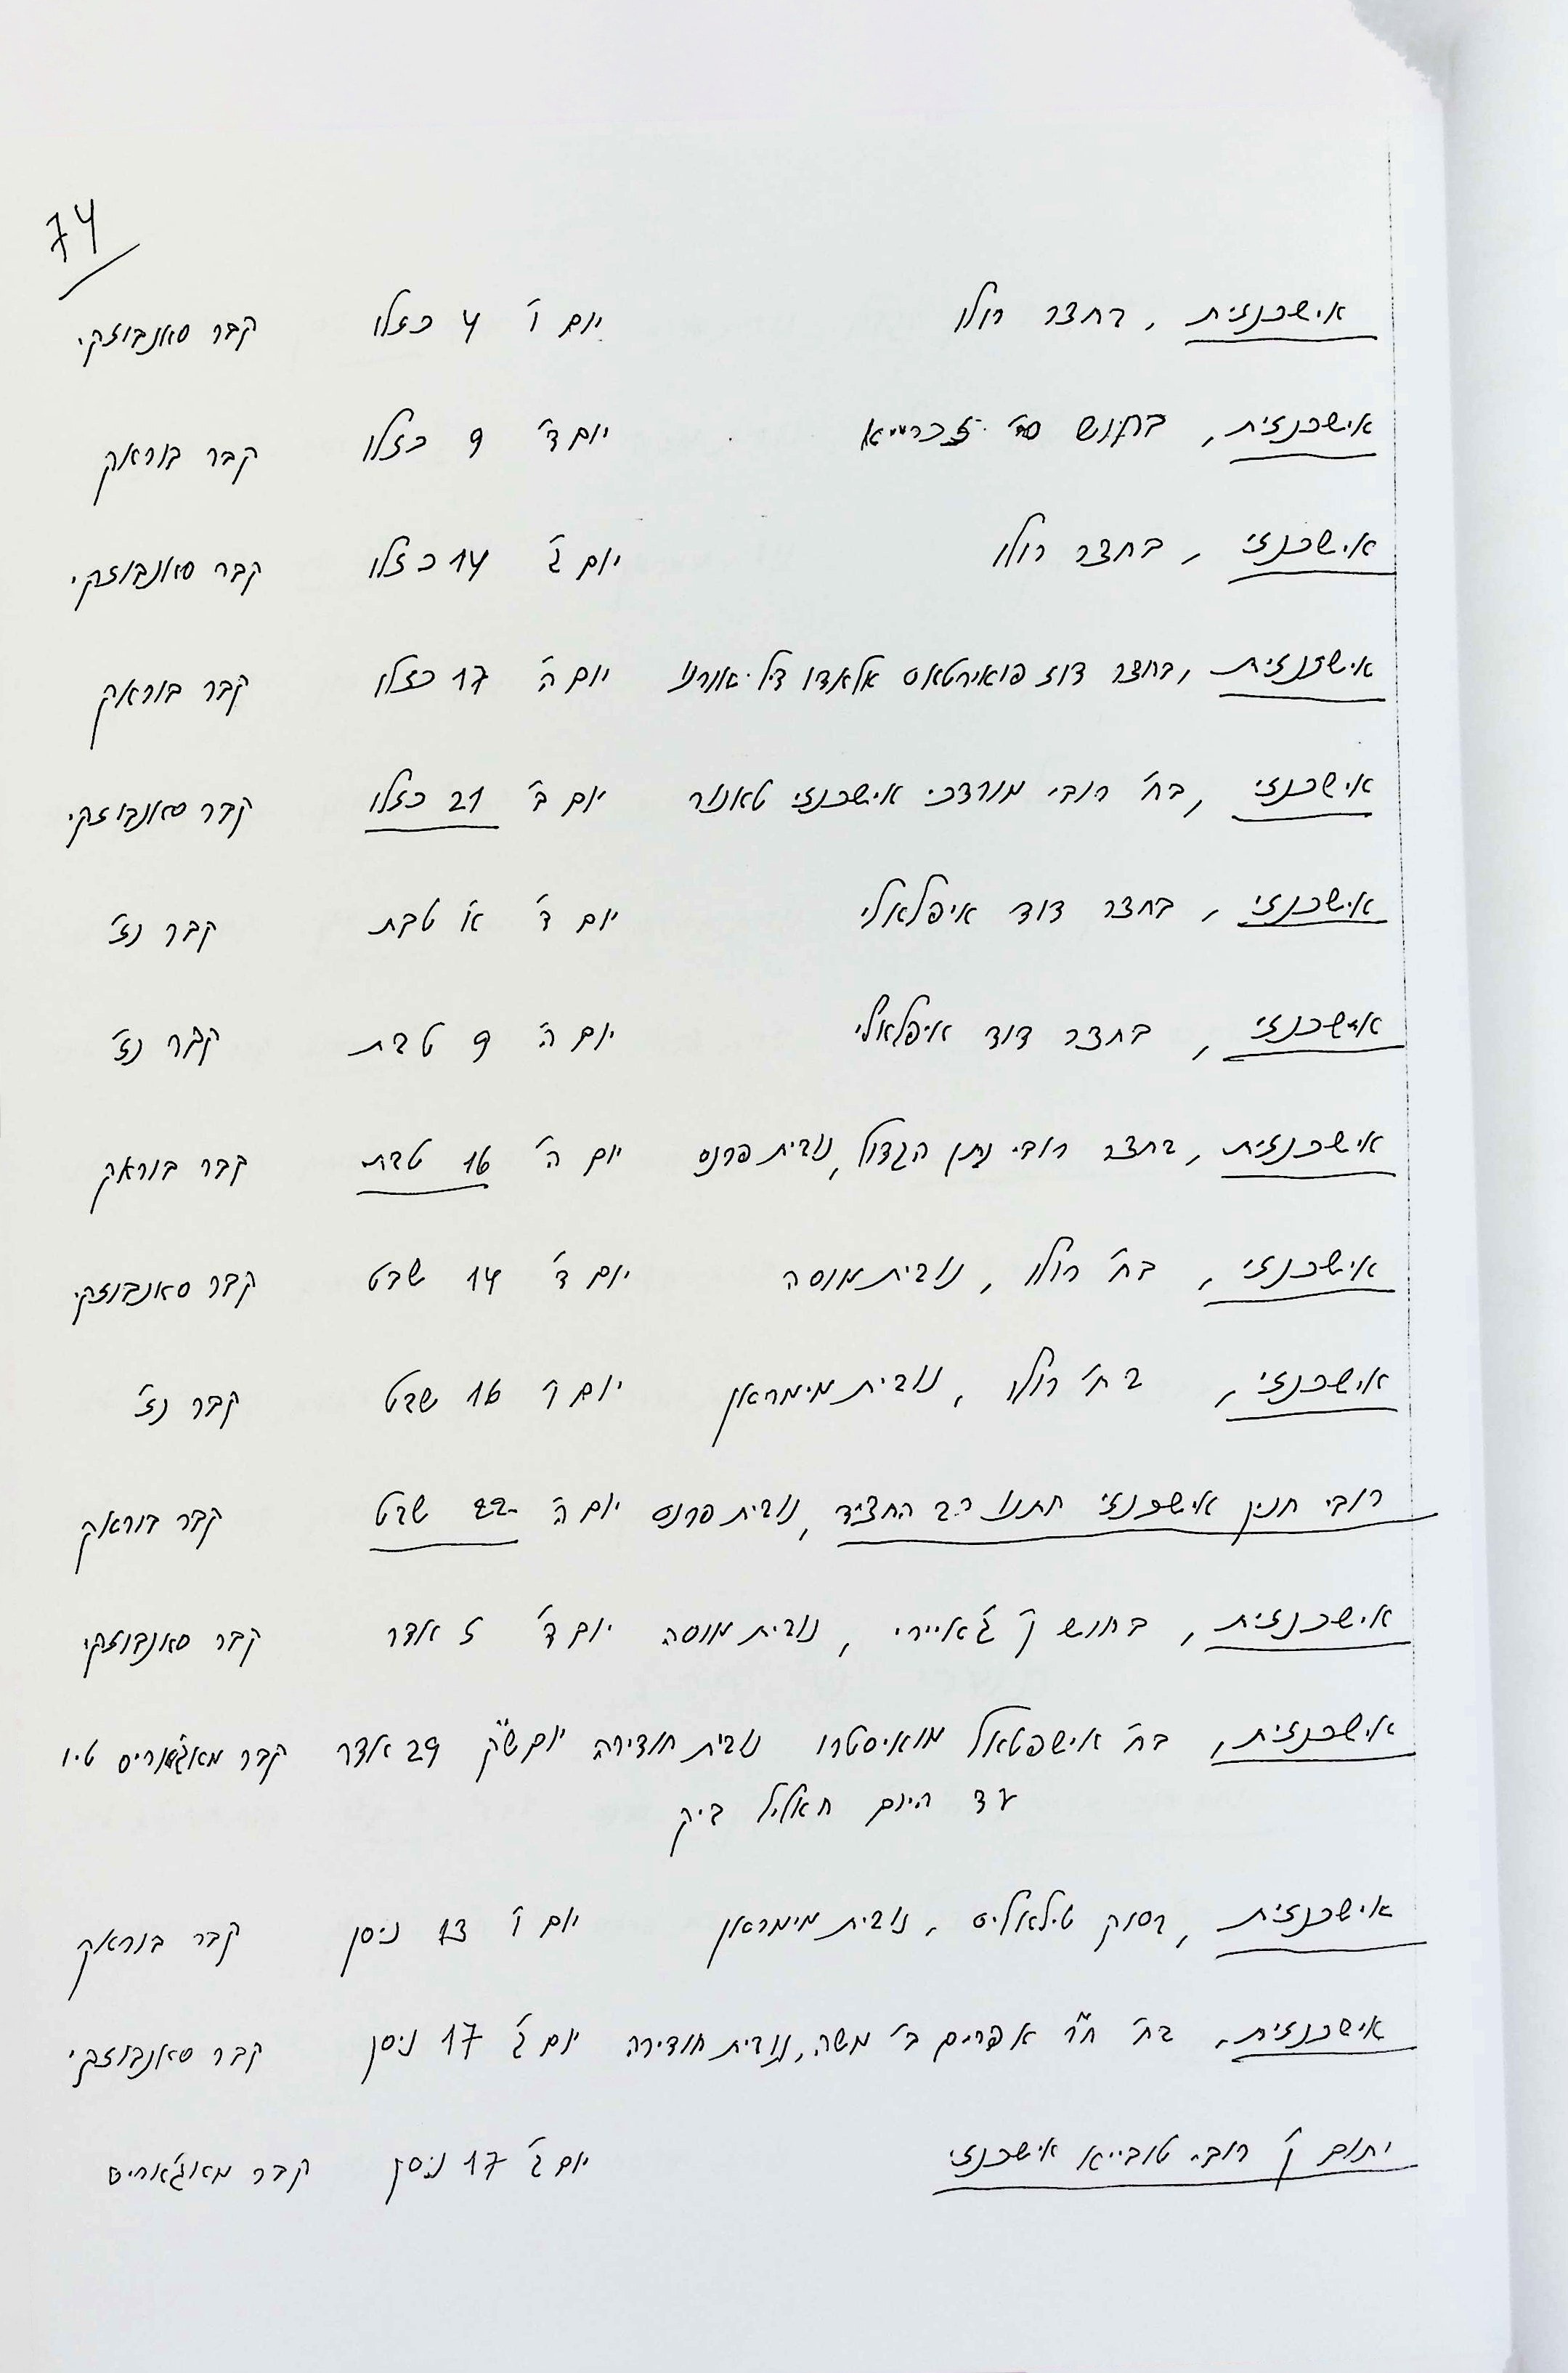 74
אישכנזית, בחצר רולו יום ו' 4 כזלו קבר סאנבוזקי
אישכנזית, בחוש זכרייא יום ד' 9 כזלו קבר בוראק
אישכנזי, בחצר רולו יום ג' 14 כזלו קבר סאנבוזקי
אישכנזית, בחצר דוז פואירטאס אלאדו דיל אורנו יום ה' 17 כזלו קבר בוראק
אישכנזי, בח' רובי מורדכי אישכנזי טאנור יום ב' 21 כזלו קבר סאנבוזקי
אישכנזי, בחצר דוד איפלאלי יום ד' א' טבת קבר נז'
אישכנזי, בחצר דוד איפלאלי יום ה' 9 טבת קבר נז'
אישכנזית, בחצר רובי נתן הגדול, נובית פרנס יום ה' 16 טבת קבר בוראק
אישכנזי, בח' רולו, נובית מוסה יום ד' 14 שבט קבר סאנבוזקי
אישכנזי, בח' רולו, נובית מימראן יום ו' 16 שבט קבר נז'
רובי חנין אישכנזי חתנו רב החציד, נובית פרנס יום ה' 22 שבט קבר בוראק
אישכנזית, בחוש ן' ג'איירי, נובית מוסה יום ד' 5 אדר קבר סאנבוזקי
אישכנזית, בח' אישפטאל מואיסטרו נובית חודירה יום ש"ק 29 אדר קבר טיו
עד היום חאליל ביק
אישכנזית, בסוק טילאליס, נובית מימראן יום ו' 13 ניסן קבר בוראק
אישכנזית, בח' ח"ר אפרים ב' משה, נובית חודירה יום ג' 17 ניסן קבר סאנבוזקי
יתום ן' רובי טובייא אישכנזי יום ג' 17 ניסן קבר מאוג'אריס